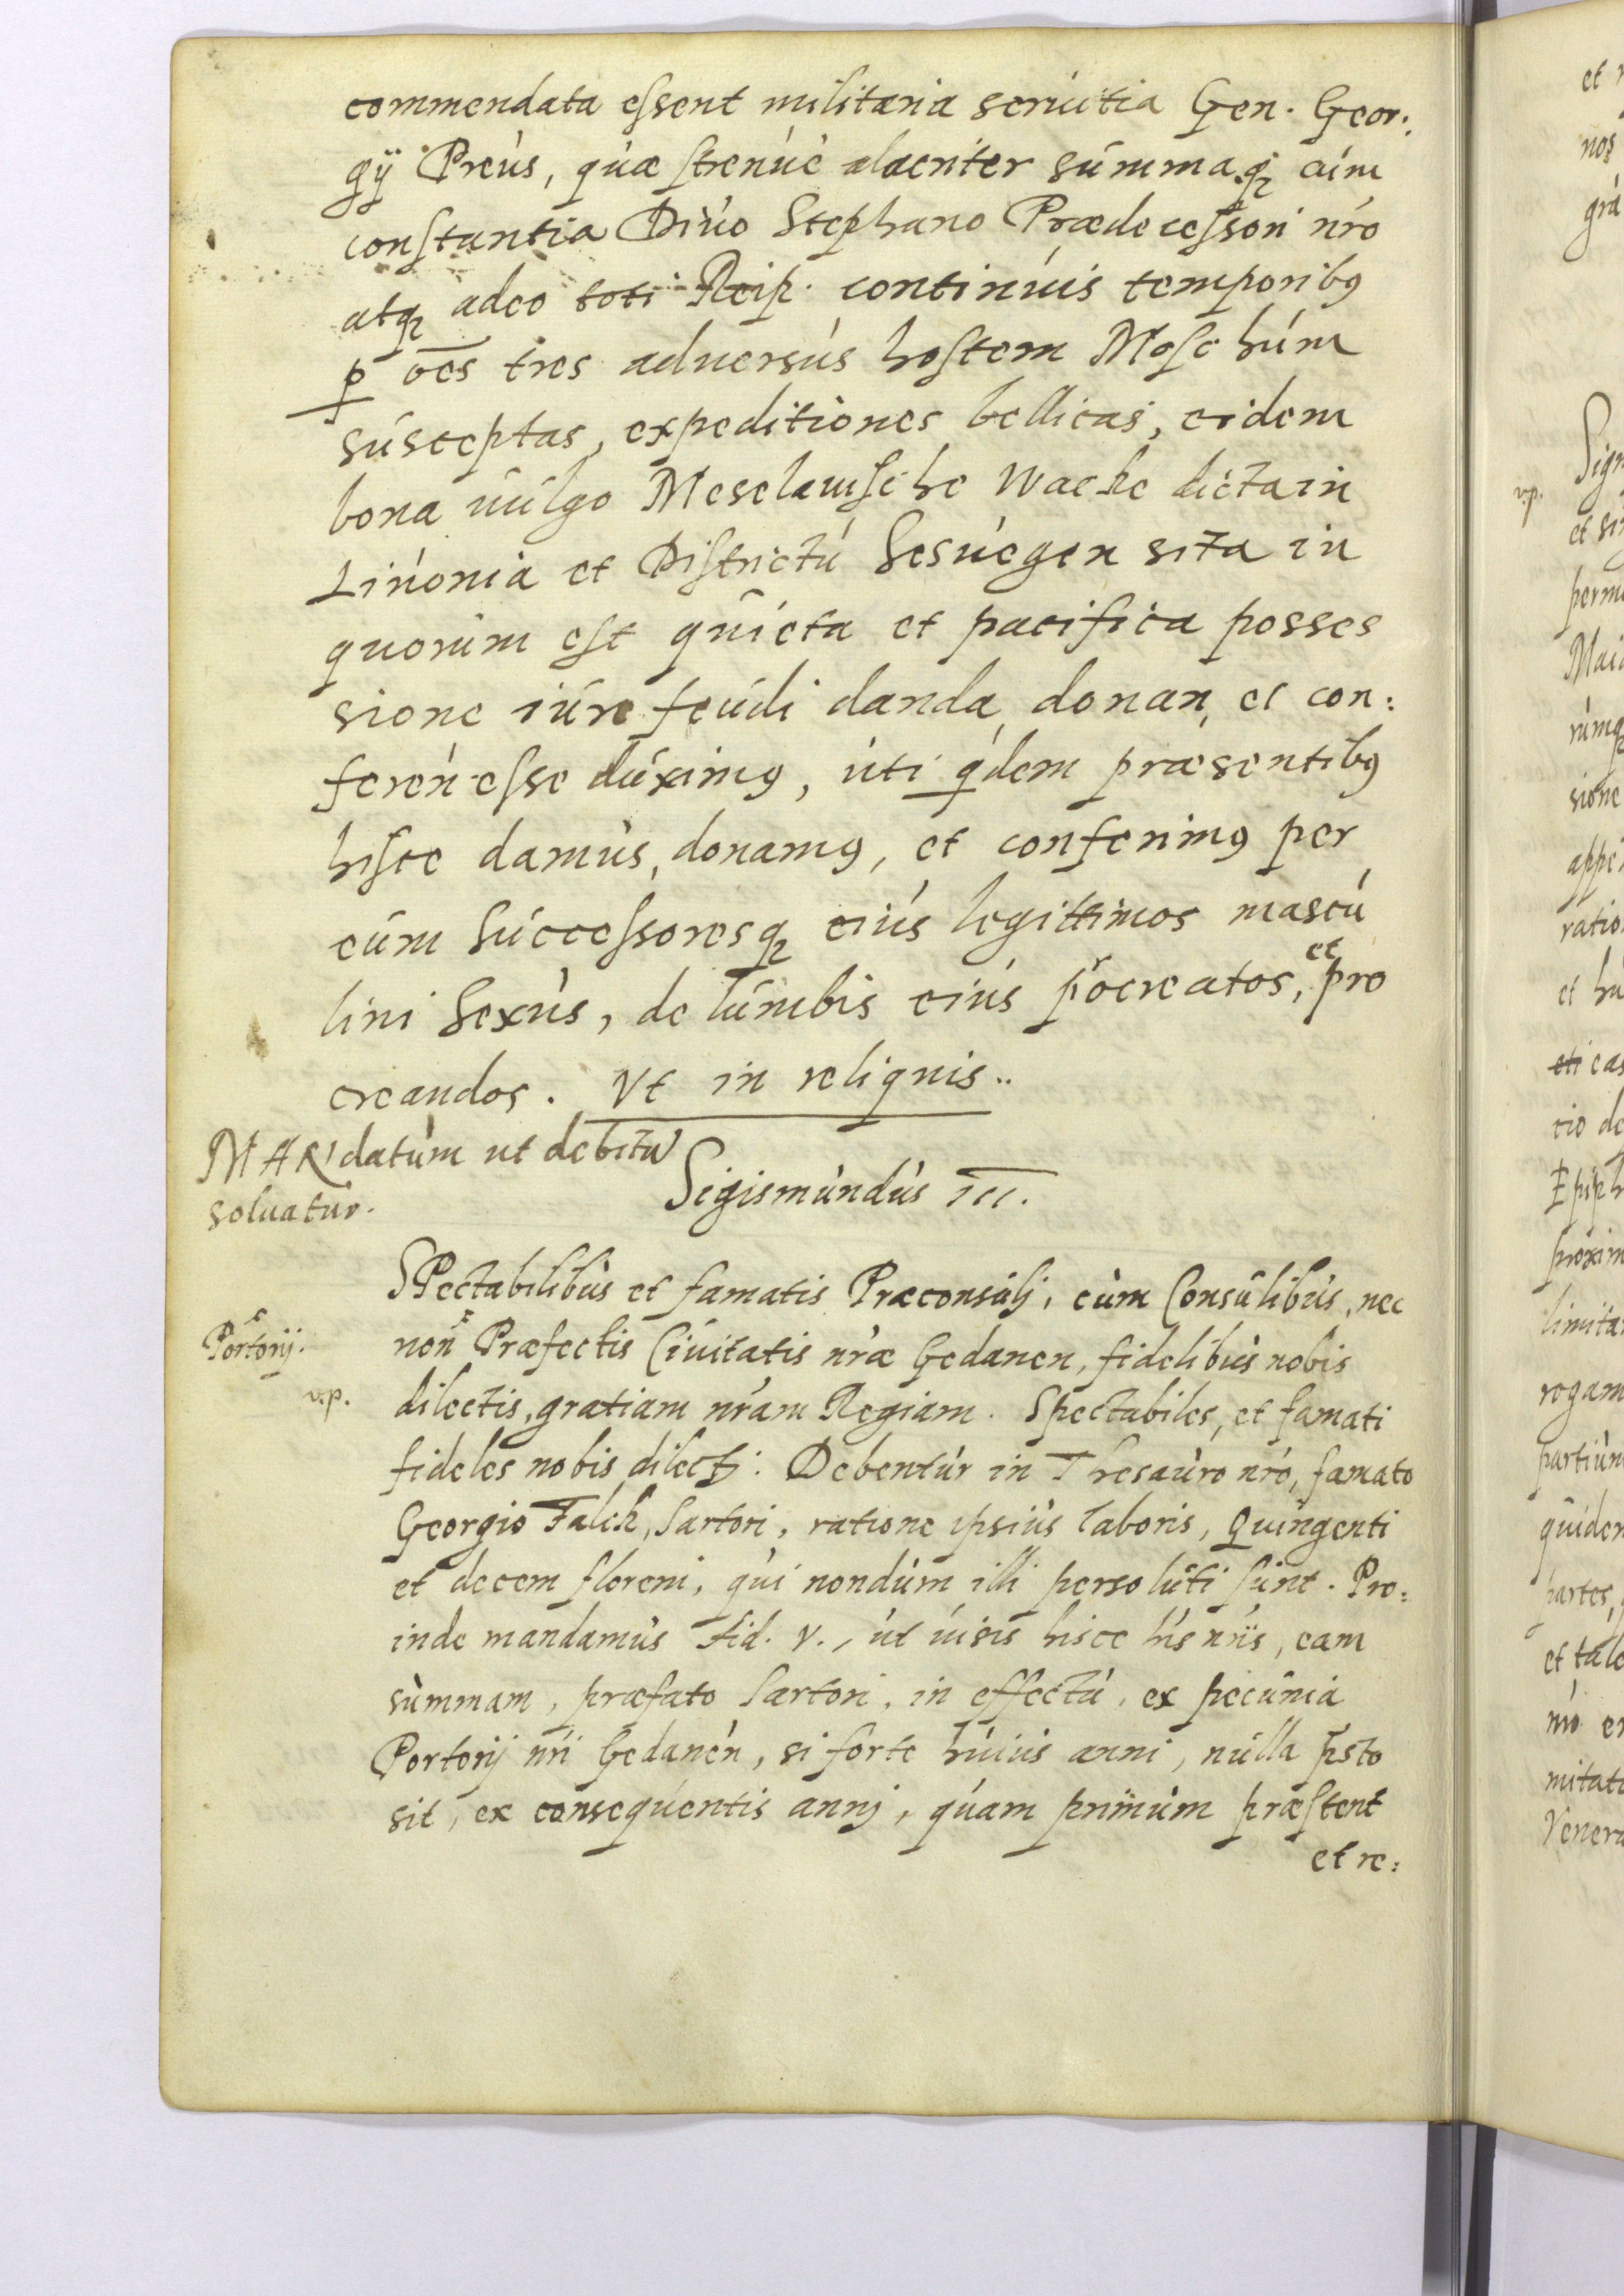 commendata essent militaria seruitia Gen. Geor:
gÿ Preus, quæ strenuè alacriter summaq; cum
constantia Diuo Stephano Prædecessori nro
atq; adeo toti Reip. continuis temporibq
p oēs tres aduersus hostem Moschum
susceptas, expeditiones bellicas, eidem
bona uulgo Meselauische Wacke dicta in
Liuonia et Districtu Sesuegen sita in
quorum est quieta et pacifica posses
sione iure feudi danda donan, et con:
feren esse duximq, uti qdem præsentibq
hisce damus, donamq, et conferimq per
eum successoresq; eius legittimos mascu
lini Sexus, de lumbis eius procreatos, et pro
creandos. Vt in reliquis..
MANdatum ut debitu
soluatur.
Sigismundus III.
SPectabilibus et famatis Præconsuli, cum Consulibus, nec
non Præfectis Ciuitatis nræ Gedanen, fidelibus nobis
Portorij.
v.p.
dilectis, gratiam nram Regiam. Spectabiles, et famati
fideles nobis dilecti: Debentur in Thesauro nro, famato
Georgio Falck, Sartori, ratione ipsius laboris, Quingenti
et decem floreni, qui nondum illi persoluti sunt. Pro:
inde mandamus Fid. V., ut uisis hisce lris nris, eam
summam, præfato Sartori, in effectu, ex pecunia
Portorij nri Gedanen, si forte huius anni, nulla psto
sit, ex consequentis annj, quam primum præstent
et re: